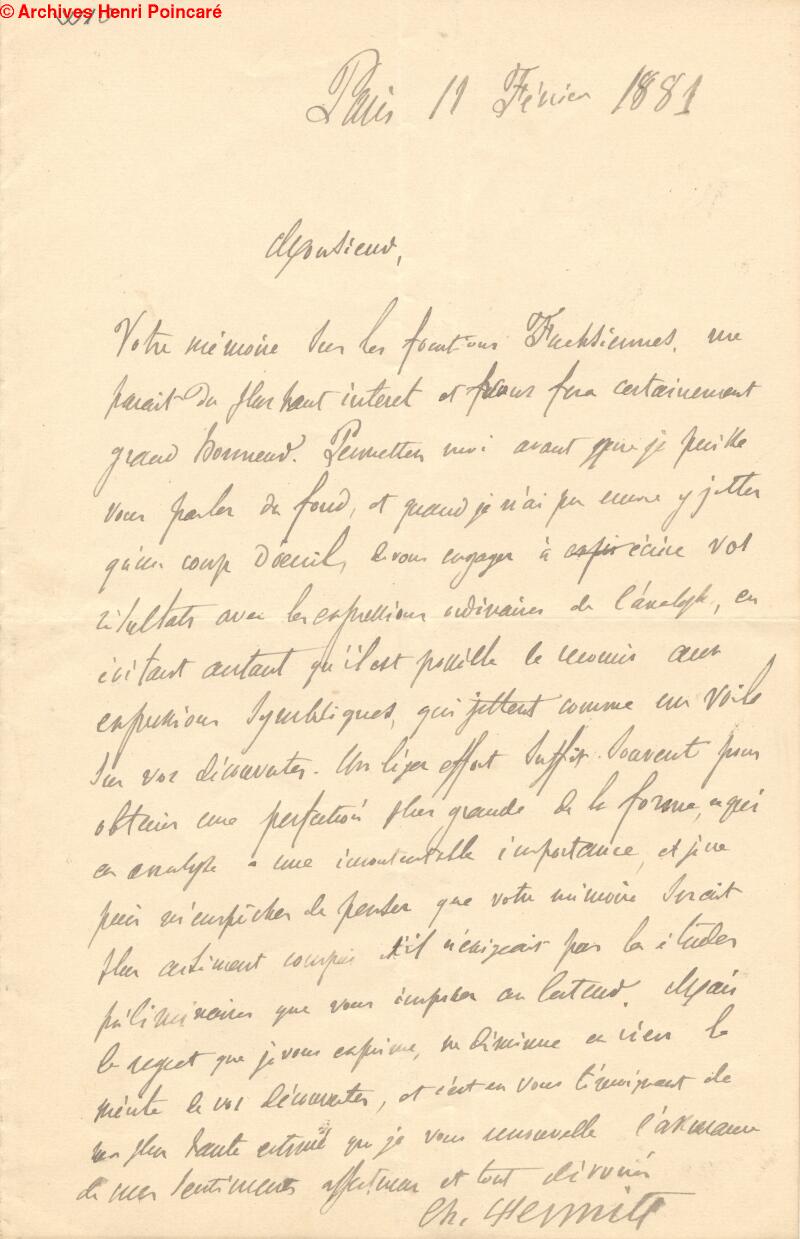 © Archives Henri Poincaré
Paris 11 Février 1881
Monsieur,
Votre mémoire sur les fonctions Fuchsiennes, me
parait du plus haut interet et vous fera certainement
grand honneur. Permettez moi avant que je puisse
vous parler du fond, et quand je n'ai pu encore y jetter
qu'un coup d'œuil, de vous engager à écrire vos
résultats avec les expressions ordinaires de l'analyse, en
évitant autant qu'il est possible le recours aux
expressions symboliques, qui jettent comme un voile
sur vos découvertes. Un léger effort suffit souvent pour
obtenir une perfection plus grande de la forme, ce qui
en analyse a une incontestable importance, et je ne
puis m'empêcher de penser que votre mémoire serait
plus aisément compris s'il n'exigeait pas les études
préliminaires que vous imposez au lecteur. Mais
le regret que je vous exprime, ne diminue en rien le
mérite de vos découvertes, et c'est en vous témoignant de
ma plus haute estime que je vous renouvelle l'assurance
de mes sentiments affectueux et tout dévoués
Ch. Hermite